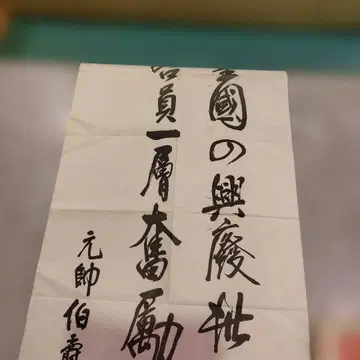 國の興廢此
員一層奮勵
元帥伯爵